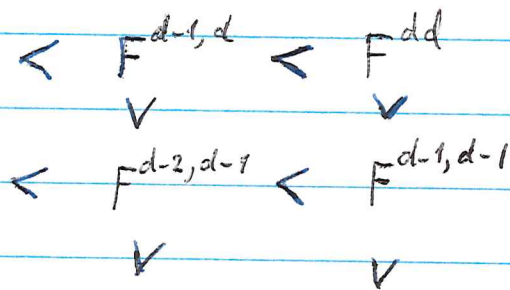 < F^{d-1, d} < F^{dd}
∨ ∨
< F^{d-2, d-1} < F^{d-1, d-1}
∨ ∨